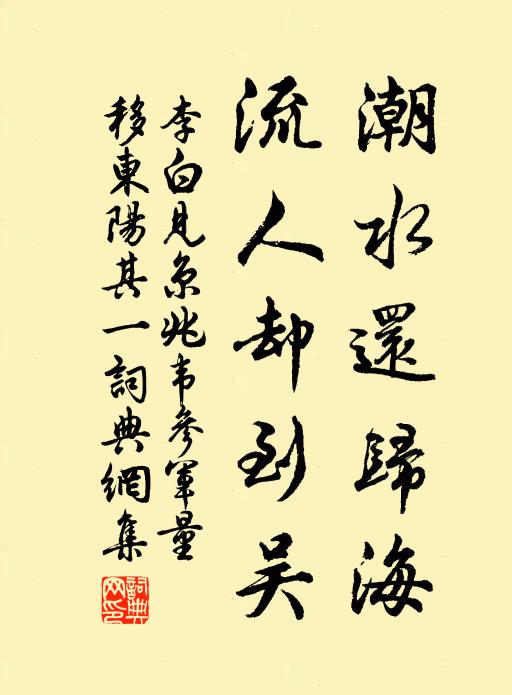 潮水還歸海
流人却到吴
李白見京兆韦參軍量
移東陽其一詞典網集
詞典网印